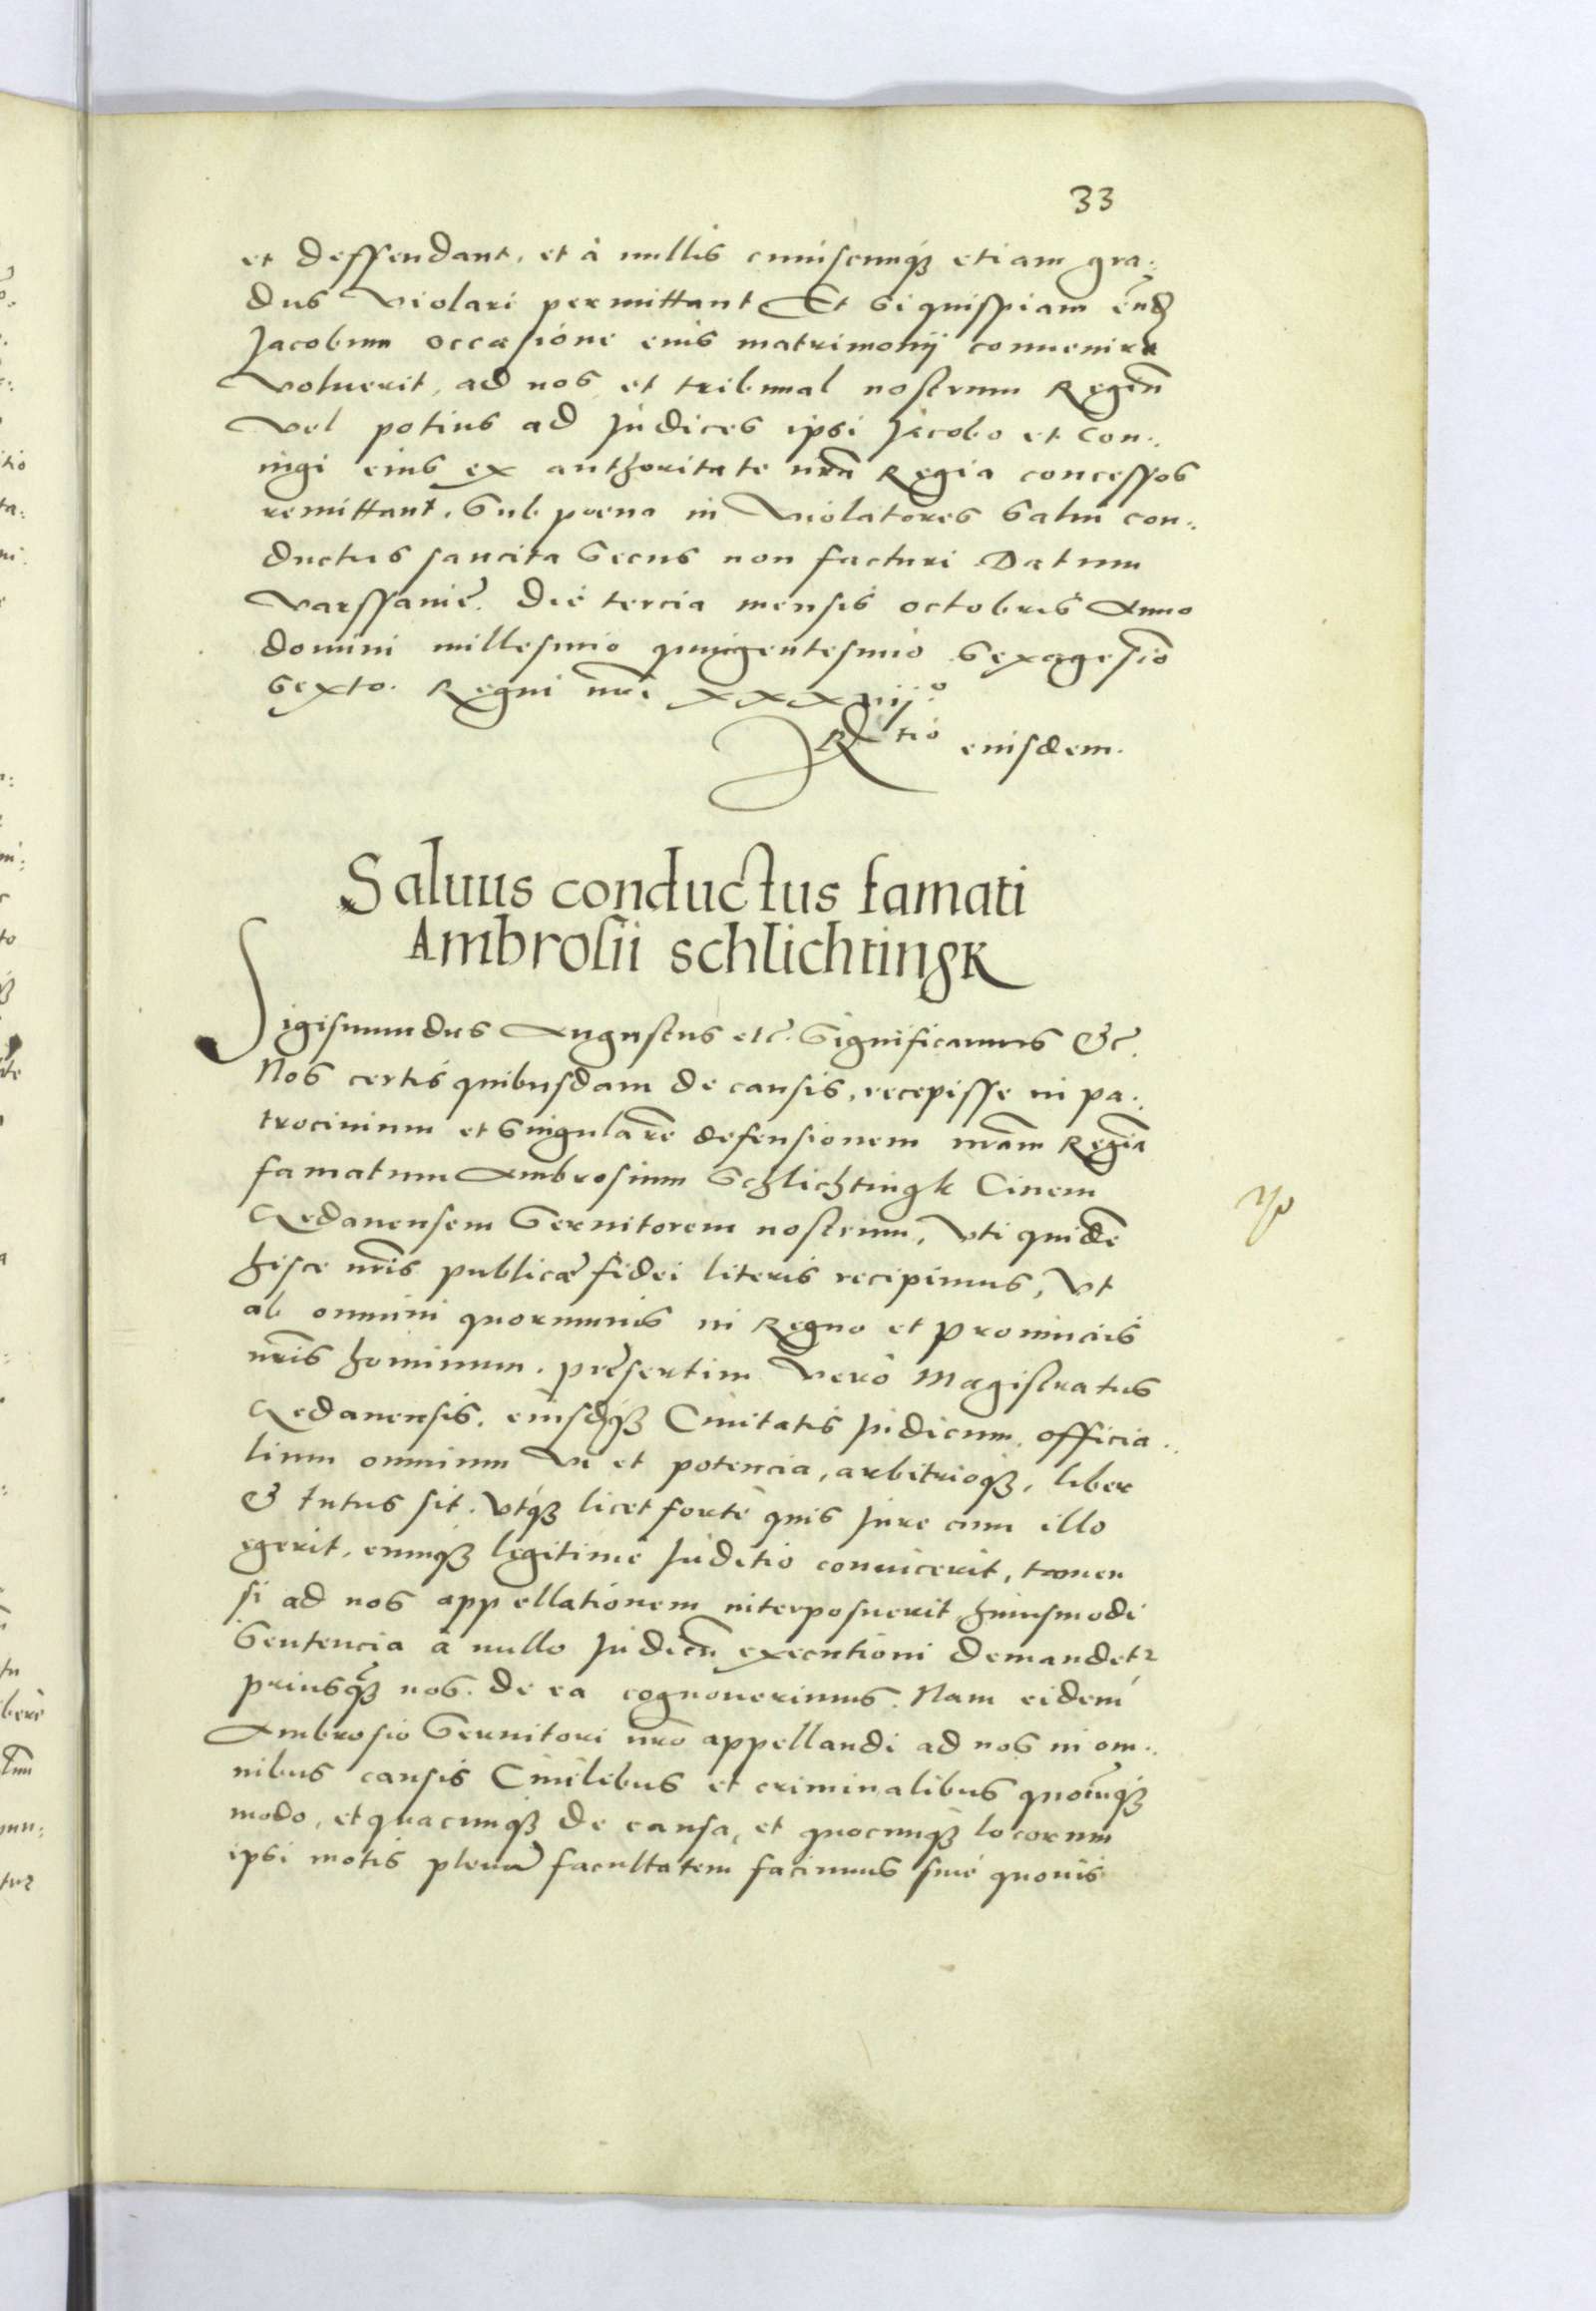 33
et deffendant, et à nullis cuiuscunqꝫ etiam gra:
dus violari permittant Et si quispiam eund
Jacobum occasione eius matrimonij conuenire
voluerit, ad nos et tribunal nostrum Regiũ
vel potius ad Judices ipsi Jacobo et Con:
iugi eius ex authoritate nrã Regia concessos
remittant, sub poena in violatores salui con:
ductus sancita secus non facturi Datum
Varssauie. Die tercia mensis octobris Anno
domini millesimo quingentesimo sexagesĩo
sexto. Regni nri xxxviij.º
Rtio eiusdem.
Saluus conductus famati
Ambrosii schlichtingk
Sigismundus Augustus etc. Significamus &c.
Nos certis quibusdam de causis, recepisse in pa:
trocinium et singularẽ defensionem nrãm Regiã
famatum Ambrosium Schlichtingk Ciuem
Gedanensem Seruitorem nostrum, vti quidẽ
hisce nris publicæ fidei literis recipimus, vt
ab omnini quorumuis in Regno et prouinciis
nris hominum. præsertim vero Magistratus
Gedanensis. eiusdqꝫ Ciuitatis Judicum, officia:
lium omnium vi et potencia, arbitrioqꝫ, liber
& tutus sit. vtqꝫ licet forte quis Jure cum illo
egerit, eumqꝫ legitime Juditio conuicerit, tamen
si ad nos appellationem interposuerit huiusmodi
Sentencia à nullo Judicũ executioni demandetr
priusq̃ꝫ nos. de ea cognouerimus. Nam eidem
Ambrosio Seruitori nro appellandi ad nos in om:
nibus causis Ciuilibus et criminalibus quocũqꝫ
modo, et quacunqꝫ de causa, et quocunqꝫ locorum
ipsi motis plenã facultatem facimus sine quouis